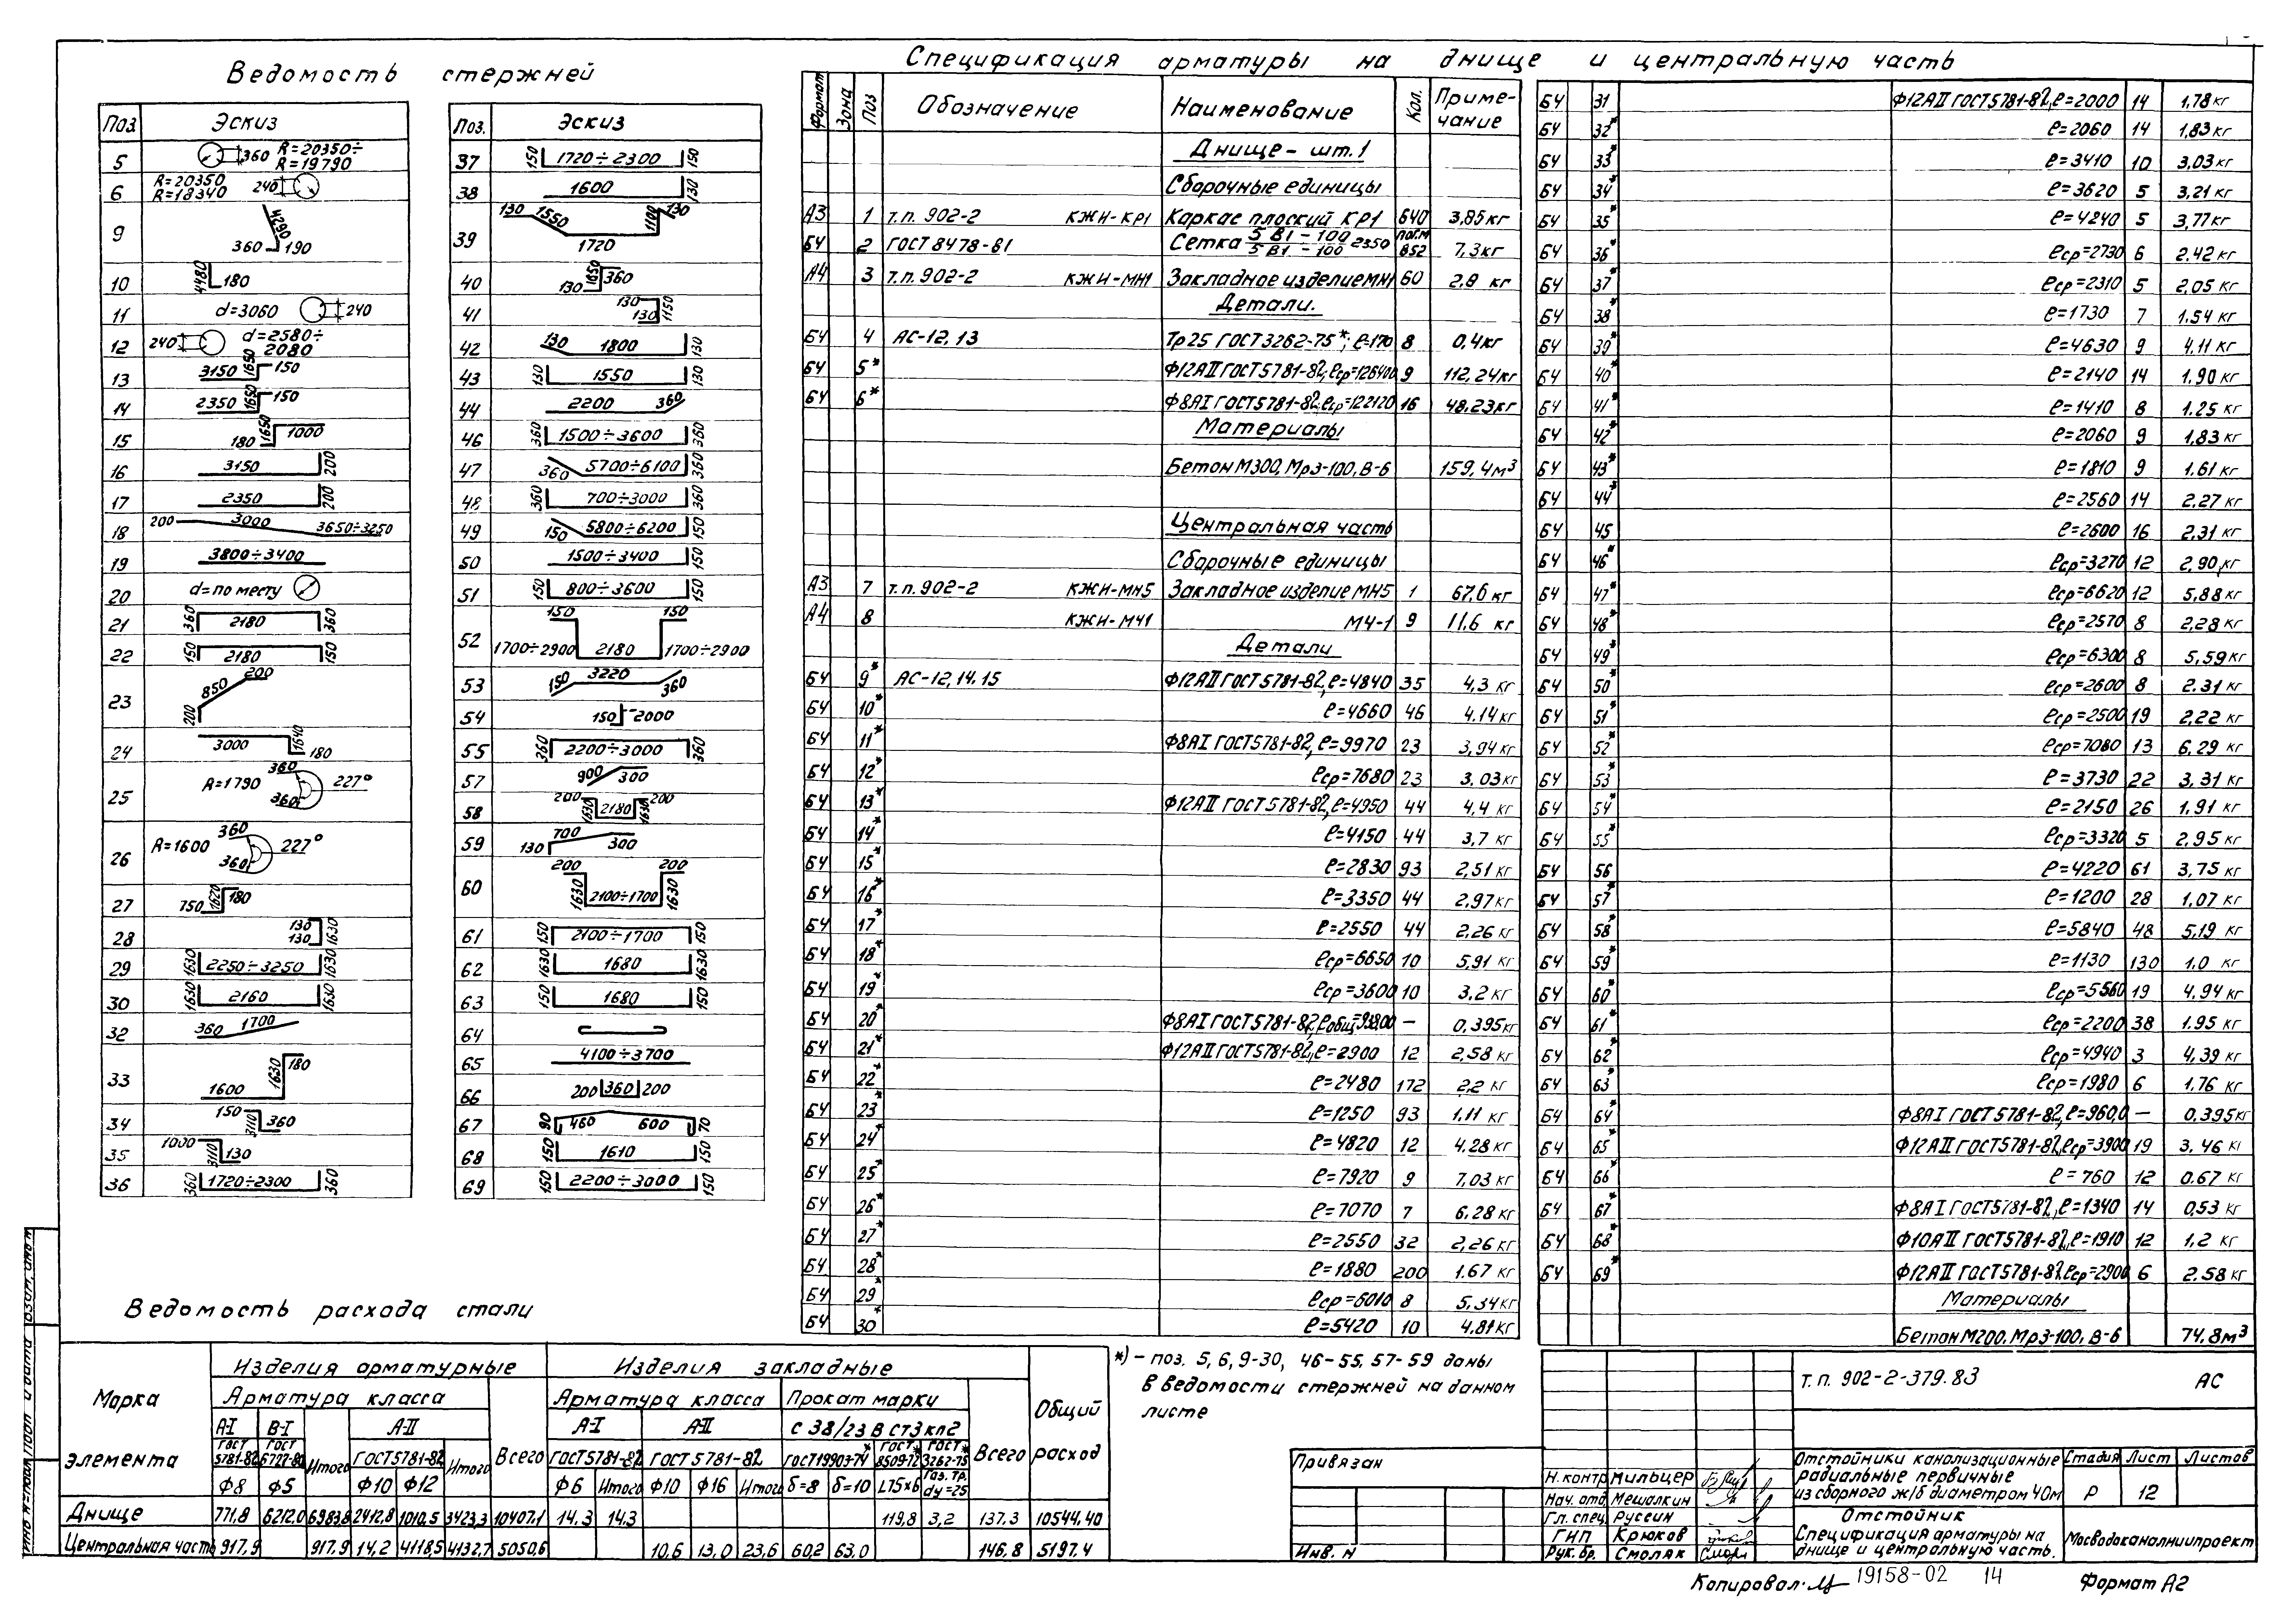 Ведомость стержней
Поз. Эскиз
5 360 R=20350÷ R=19790
6 R=20350 R=18340 240
9 4290 360 190
10 4480 180
11 d=3060 240
12 240 d=2580÷ 2080
13 3150 1650 150
14 2350 1650 150
15 180 1650 1000
16 3150 200
17 2350 200
18 200 3000 3650÷3250
19 3800÷3400
20 d=по месту
21 360 2180 360
22 150 2180 150
23 200 850 200
24 3000 1640 180
25 R=1790 360 360 227°
26 R=1600 360 360 227°
27 750 1620 180
28 130 130 1630
29 1630 2250÷3250 1630
30 1630 2160 1630
32 360 1700
33 1600 1630 180
34 150 3110 360
35 1000 3110 130
36 360 1720÷2300 360
Поз. Эскиз
37 150 1720÷2300 150
38 1600 130
39 130 1550 1720 1100 130
40 130 1650 360
41 130 130 1150
42 130 1800 130
43 130 1550 130
44 2200 360
46 360 1500÷3600 360
47 360 5700÷6100 360
48 360 700÷3000 360
49 150 5800÷6200 150
50 1500÷3400 150
51 150 800÷3600 150
52 150 150 1700÷2900 2180 1700÷2900
53 150 3220 360
54 150 2000
55 360 2200÷3000 360
57 900 300
58 200 1630 2180 1630 200
59 130 700 300
60 200 200 1630 2100÷1700 1630
61 150 2100÷1700 150
62 1630 1680 1630
63 150 1680 150
64
65 4100÷3700
66 200 360 200
67 90 460 600 70
68 150 1610 150
69 150 2200÷3000 150
Спецификация арматуры на днище и центральную часть
Формат Зона Поз Обозначение Наименование Кол. Приме-чание
Днище – шт.1
Сборочные единицы
А3 1 т.п. 902-2 КЖИ-КР1 Каркас плоский КР1 640 3,85кг
БЧ 2 ГОСТ 8478-81 Сетка 5 В1 – 100 / 5 В1 – 100 2350 пог.м 852 7,3кг
А4 3 т.п. 902-2 КЖИ-МН1 Закладное изделие МН1 60 2,8 кг
Детали.
БЧ 4 АС-12,13 Тр25 ГОСТ3262-75*; ℓ=170 8 0,4кг
БЧ 5* Ф12АII ГОСТ5781-82, ℓср=126400 9 112,24кг
БЧ 6* Ф8АI ГОСТ5781-82, ℓср=122120 16 48,23кг
Материалы
Бетон М300, Мрз-100, В-6 159,4м³
Центральная часть
Сборочные единицы
А3 7 т.п. 902-2 КЖИ-МН5 Закладное изделие МН5 1 67,6 кг
А4 8 КЖИ-МЧ1 МЧ-1 9 11,6 кг
Детали
БЧ 9* АС-12,14,15 Ф12АII ГОСТ5781-82, ℓ=4840 35 4,3 кг
БЧ 10* ℓ=4660 46 4,14 кг
БЧ 11* Ф8АI ГОСТ5781-82, ℓ=9970 23 3,94 кг
БЧ 12* ℓср=7680 23 3,03кг
БЧ 13* Ф12АII ГОСТ5781-82, ℓ=4950 44 4,4 кг
БЧ 14* ℓ=4150 44 3,7 кг
БЧ 15* ℓ=2830 93 2,51 кг
БЧ 16* ℓ=3350 44 2,97кг
БЧ 17* ℓ=2550 44 2,26 кг
БЧ 18* ℓср=6650 10 5,91 кг
БЧ 19* ℓср=3600 10 3,2 кг
БЧ 20* Ф8АI ГОСТ5781-82, ℓобщ= — 0,395кг
БЧ 21* Ф12АII ГОСТ5781-82, ℓ=2900 12 2,58 кг
БЧ 22* ℓ=2480 172 2,2 кг
БЧ 23* ℓ=1250 93 1,11 кг
БЧ 24* ℓ=4820 12 4,28 кг
БЧ 25* ℓ=7920 9 7,03 кг
БЧ 26* ℓ=7070 7 6,28 кг
БЧ 27* ℓ=2550 32 2,26 кг
БЧ 28* ℓ=1880 200 1.67 кг
БЧ 29* ℓср=6010 8 5,34кг
БЧ 30* ℓ=5420 10 4.81кг
БЧ 31 Ф12АII ГОСТ5781-82, ℓ=2000 14 1,78 кг
БЧ 32* ℓ=2060 14 1,83 кг
БЧ 33* ℓ=3410 10 3,03 кг
БЧ 34* ℓ=3620 5 3,21 кг
БЧ 35* ℓ=4240 5 3,77 кг
БЧ 36* ℓср=2730 6 2.42 кг
БЧ 37* ℓср=2310 5 2,05 кг
БЧ 38* ℓ=1730 7 1.54 кг
БЧ 39* ℓ=4630 9 4.11 кг
БЧ 40* ℓ=2140 14 1.90 кг
БЧ 41* ℓ=1410 8 1.25 кг
БЧ 42* ℓ=2060 9 1,83 кг
БЧ 43* ℓ=1810 9 1.61 кг
БЧ 44* ℓ=2560 14 2,27 кг
БЧ 45 ℓ=2600 16 2.31 кг
БЧ 46* ℓср=3270 12 2,90 кг
БЧ 47* ℓср=6620 12 5,88 кг
БЧ 48* ℓср=2570 8 2,28 кг
БЧ 49* ℓср=6300 8 5,59 кг
БЧ 50* ℓср=2600 8 2.31 кг
БЧ 51* ℓср=2500 19 2,22 кг
БЧ 52* ℓср=7080 13 6.29 кг
БЧ 53* ℓ=3730 22 3,31 кг
БЧ 54* ℓ=2150 26 1,91 кг
БЧ 55* ℓср=3320 5 2,95 кг
БЧ 56 ℓ=4220 61 3,75 кг
БЧ 57* ℓ=1200 28 1,07 кг
БЧ 58* ℓ=5840 48 5,19 кг
БЧ 59* ℓ=1130 130 1.0 кг
БЧ 60* ℓср=5560 19 4.94 кг
БЧ 61* ℓср=2200 38 1.95 кг
БЧ 62* ℓср=4940 3 4,39 кг
БЧ 63* ℓср=1980 6 1.76 кг
БЧ 64* Ф8АI ГОСТ5781-82, ℓ=960,0 — 0.395кг
БЧ 65* Ф12АII ГОСТ5781-82, ℓср=3900 19 3,46 кг
БЧ 66* ℓ=760 12 0.67 кг
БЧ 67* Ф8АI ГОСТ5781-82, ℓ=1340 14 0,53 кг
БЧ 68* Ф10АII ГОСТ5781-82, ℓ=1910 12 1,2 кг
БЧ 69* Ф12АII ГОСТ5781-82, ℓср=2900 6 2.58 кг
Материалы
Бетон М200, Мрз-100, В-6 74,8м³
Ведомость расхода стали
Марка элемента Изделия арматурные Изделия закладные Общий расход
Арматура класса Всего Арматура класса Прокат марки Всего
А-I В-I А-II А-I А-II С 38/23 В СТ3 кп2
ГОСТ 5781-82 ГОСТ 6727-80 Итого ГОСТ5781-82 Итого ГОСТ5781-82 ГОСТ 5781-82 ГОСТ19903-74* ГОСТ* 8509-72 ГОСТ* 3262-75
Ф8 Ф5 Ф10 Ф12 Ф6 Итого Ф10 Ф16 Итого δ=8 δ=10 L75х6 Газ. тр. dу=25
Днище 771,8 6212,0 6983,8 2412,8 1010,5 3423,3 10407,1 14,3 14,3 119,8 3,2 137,3 10544,40
Центральная часть 917,9 917,9 14,2 4118,5 4132,7 5050,6 10,6 13,0 23,6 60,2 63,0 146,8 5197,4
*) – поз. 5, 6, 9-30, 46-55, 57-59 даны
в ведомости стержней на данном
листе
Привязан
Инв. N
т.п. 902-2-379.83 АС
Н.контр Мильцер
Нач. отд Мешалкин
Гл. спец. Руссин
ГИП Крюков
Рук. бр. Смоляк
Отстойники канализационные
радиальные первичные
из сборного ж/б диаметром 40м
Стадия Лист Листов
Р 12
Отстойник
Спецификация арматуры на
днище и центральную часть.
Мосводоканалниипроект
Копировал. 19158-02 14 Формат А2